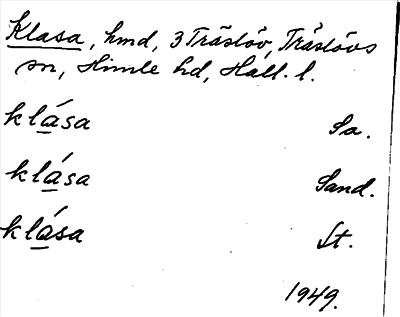 Klasa, hmd, 3 Träslöv, Träslövs
sn, Himle hd, Hall. l.
klása Sa.
klása Sand.
klása St.
1949.